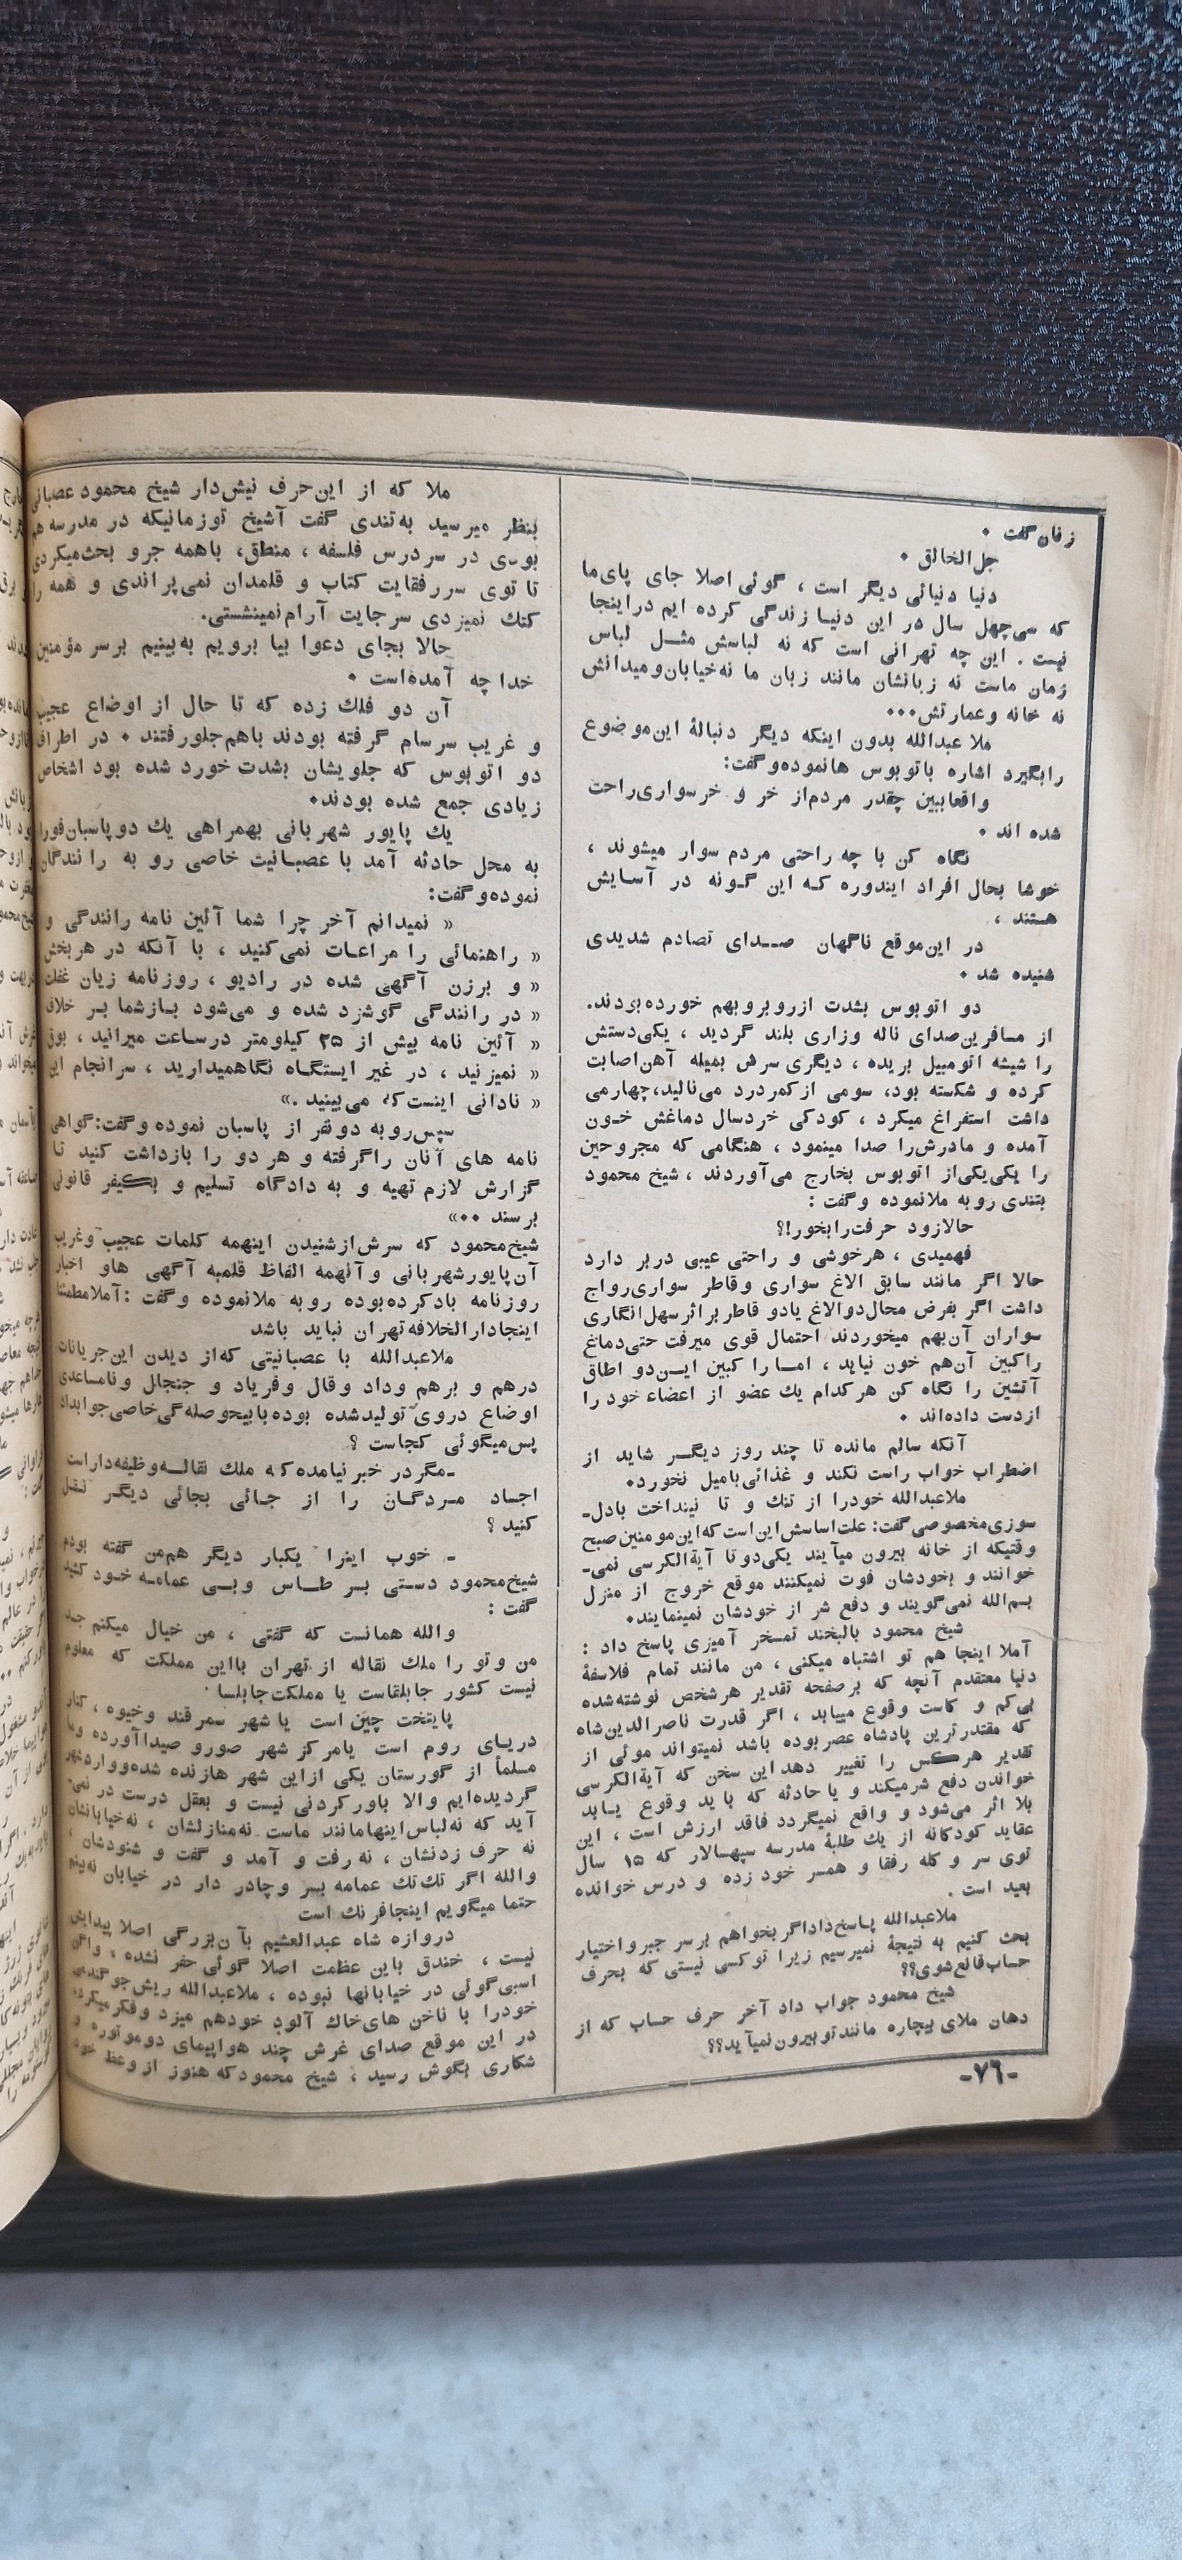 زنان گفت .
جل الخالق .
دنیا دنیائی دیگر است ، گوئی اصلا جای پای ما
که سی چهل سال در این دنیا زندگی کرده ایم در اینجا
نیست . این چه تهرانی است که نه لباسش مثل لباس
زمان ماست نه زبانشان مانند زبان ما نه خیابان و میدانش
نه خانه و عمارتش...
ملا عبدالله بدون اینکه دیگر دنبالهٔ این موضوع
را بگیرد اشاره باتوبوس ها نموده و گفت:
واقعا ببین چقدر مردم از خر و خرسواری راحت
شده اند .
نگاه کن با چه راحتی مردم سوار میشوند ،
خوشا بحال افراد ایندوره که این گونه در آسایش
هستند ،
در این موقع ناگهان صدای تصادم شدیدی
شنیده شد .
دو اتوبوس بشدت از روبرو بهم خورده بودند.
از مسافرین صدای ناله وزاری بلند گردید ، یکی دستش
را شیشه اتومبیل بریده ، دیگری سرش بمیله آهن اصابت
کرده و شکسته بود، سومی از کمردرد می نالید، چهارمی
داشت استفراغ میکرد ، کودکی خردسال دماغش خون
آمده و مادرش را صدا مینمود ، هنگامی که مجروحین
را یکی یکی از اتوبوس بخارج می آوردند ، شیخ محمود
بتندی رو به ملا نموده و گفت :
حالا زود حرفت را بخور!؟
فهمیدی ، هر خوشی و راحتی عیبی در بر دارد
حالا اگر مانند سابق الاغ سواری و قاطر سواری رواج
داشت اگر بفرض محال دو الاغ یا دو قاطر بر اثر سهل انگاری
سواران آن بهم میخوردند احتمال قوی میرفت حتی دماغ
راکبین آن هم خون نیاید ، اما راکبین این دو اطاق
آتشین را نگاه کن هر کدام یك عضو از اعضاء خود را
از دست داده اند .
آنکه سالم مانده تا چند روز دیگر شاید از
اضطراب خواب راست نکند و غذائی بامیل نخورد.
ملاعبدالله خود را از تنك و تا نینداخت بادل-
سوزی مخصوصی گفت: علت اساسش این است که این مومنین صبح
وقتیکه از خانه بیرون میآیند یکی دو تا آیة الکرسی نمی-
خوانند و بخودشان فوت نمیکنند موقع خروج از منزل
بسم الله نمی گویند و دفع شر از خودشان نمینمایند.
شیخ محمود بالبخند تمسخر آمیزی پاسخ داد :
آملا اینجا هم تو اشتباه میکنی ، من مانند تمام فلاسفهٔ
دنیا معتقدم آنچه که بر صفحه تقدیر هر شخص نوشته شده
بی کم و کاست وقوع مییابد ، اگر قدرت ناصرالدین شاه
که مقتدرترین پادشاه عصر بوده باشد نمیتواند موئی از
تقدیر هرکس را تغییر دهد این سخن که آیة الکرسی
خواندن دفع شر میکند و یا حادثه که باید وقوع یابد
بلا اثر می شود و واقع نمیگردد فاقد ارزش است ، این
عقاید کودکانه از یك طلبهٔ مدرسه سپهسالار که ۱۵ سال
توی سر و کله رفقا و همسر خود زده و درس خوانده
بعید است .
ملاعبدالله پاسخ داد اگر بخواهم بر سر جبر و اختیار
بحث کنیم به نتیجهٔ نمیرسیم زیرا تو کسی نیستی که بحرف
حساب قانع شوی؟؟
شیخ محمود جواب داد آخر حرف حساب که از
دهان ملای بیچاره مانند تو بیرون نمیآید؟؟
ملا که از این حرف نیش دار شیخ محمود عصبانی
بنظر میرسید به تندی گفت آشیخ تو زمانیکه در مدرسه هم
بودی در سر درس فلسفه ، منطق، باهمه جر و بحث میکردی
تا توی سر رفقایت کتاب و قلمدان نمی پراندی و همه را
کتك نمیزدی سر جایت آرام نمینشستی.
حالا بجای دعوا بیا برویم به بینیم بر سر مؤمنین
خدا چه آمده است .
آن دو فلك زده که تا حال از اوضاع عجیب
و غریب سرسام گرفته بودند باهم جلو رفتند . در اطراف
دو اتوبوس که جلویشان بشدت خورد شده بود اشخاص
زیادی جمع شده بودند.
یك پایور شهربانی بهمراهی یك دو پاسبان فورا
به محل حادثه آمد با عصبانیت خاصی رو به رانندگان
نموده و گفت:
« نمیدانم آخر چرا شما آئین نامه رانندگی و
« راهنمائی را مراعات نمی کنید ، با آنکه در هر بخش
« و برزن آگهی شده در رادیو ، روزنامه زیان غفلت
« در رانندگی گوشزد شده و می شود باز شما بر خلاف
« آئین نامه بیش از ۲۵ کیلومتر در ساعت میرانید ، بوق
« نمیزنید ، در غیر ایستگاه نگاهمیدارید ، سرانجام این
« نادانی اینست که می بینید .»
سپس رو به دو نفر از پاسبان نموده و گفت: گواهی
نامه های آنان را گرفته و هر دو را بازداشت کنید تا
گزارش لازم تهیه و به دادگاه تسلیم و بکیفر قانونی
برسند ..»
شیخ محمود که سرش از شنیدن اینهمه کلمات عجیب و غریب
آن پایور شهربانی و آنهمه الفاظ قلمبه آگهی ها و اخبار
روزنامه باد کرده بوده رو به ملا نموده و گفت : آملا مطمئنا
اینجا دارالخلافه تهران نباید باشد
ملاعبدالله با عصبانیتی که از دیدن این جریانات
درهم و برهم و داد و قال و فریاد و جنجال و نامساعدی
اوضاع در وی تولید شده بوده با بیحوصله گی خاصی جواب داد
پس میگوئی کجاست ؟
-مگر در خبر نیامده که ملك نقاله وظیفه دار است
اجساد مردگان را از جائی بجائی دیگر نقل
کنید ؟
- خوب اینرا یکبار دیگر هم من گفته بودم
شیخ محمود دستی بسر طاس و بی عمامه خود کشید
گفت :
والله همانست که گفتی ، من خیال میکنم جسد
من و تو را ملك نقاله از تهران با این مملکت که معلوم
نیست کشور جابلقاست یا مملکت جابلسا
پایتخت چین است یا شهر سمرقند و خیوه ، کنار
دریای روم است یا مرکز شهر صور و صیدا آورده و ما
مسلماً از گورستان یکی از این شهر ها زنده شده و وارد شهر
گردیده ایم والا باور کردنی نیست و بعقل درست در نمی-
آید که نه لباس اینها مانند ماست نه منازلشان ، نه خیابانشان
نه حرف زدنشان ، نه رفت و آمد و گفت و شنودشان ،
والله اگر تك تك عمامه بسر و چادر دار در خیابان نه بینم
حتما میگویم اینجا فرنك است
دروازه شاه عبدالعظیم بآن بزرگی اصلا پیدایش
نیست ، خندق باین عظمت اصلا گوئی حفر نشده ، واگن
اسبی گوئی در خیابانها نبوده ، ملاعبدالله ریش جو گندمی
خود را با ناخن های خاك آلود خودهم میزد و فکر میکرد
در این موقع صدای غرش چند هواپیمای دو موتوره و
شکاری بگوش رسید ، شیخ محمود که هنوز از وعظ خود
-۷۶-